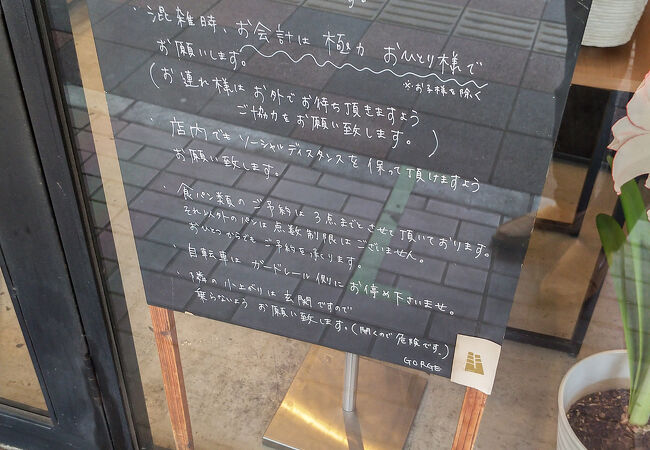 す。
・混雑時、お会計は極力おひとり様で
お願いします。
※お子様を除く
(お連れ様はお外でお待ち頂きますよう
ご協力をお願い致します。)
・店内でもソーシャルディスタンスを保って頂けますよう
お願い致します。
・食パン類のご予約は3点までとさせて頂いております。
それ以外のパンは点数制限はございません。
おひとつからでもご予約を承ります。
・自転車はガードレール側にお停め下さいませ。
・隣の小上がりは玄関ですので
乗らないようお願い致します。(開くので危険です。)
GORGE